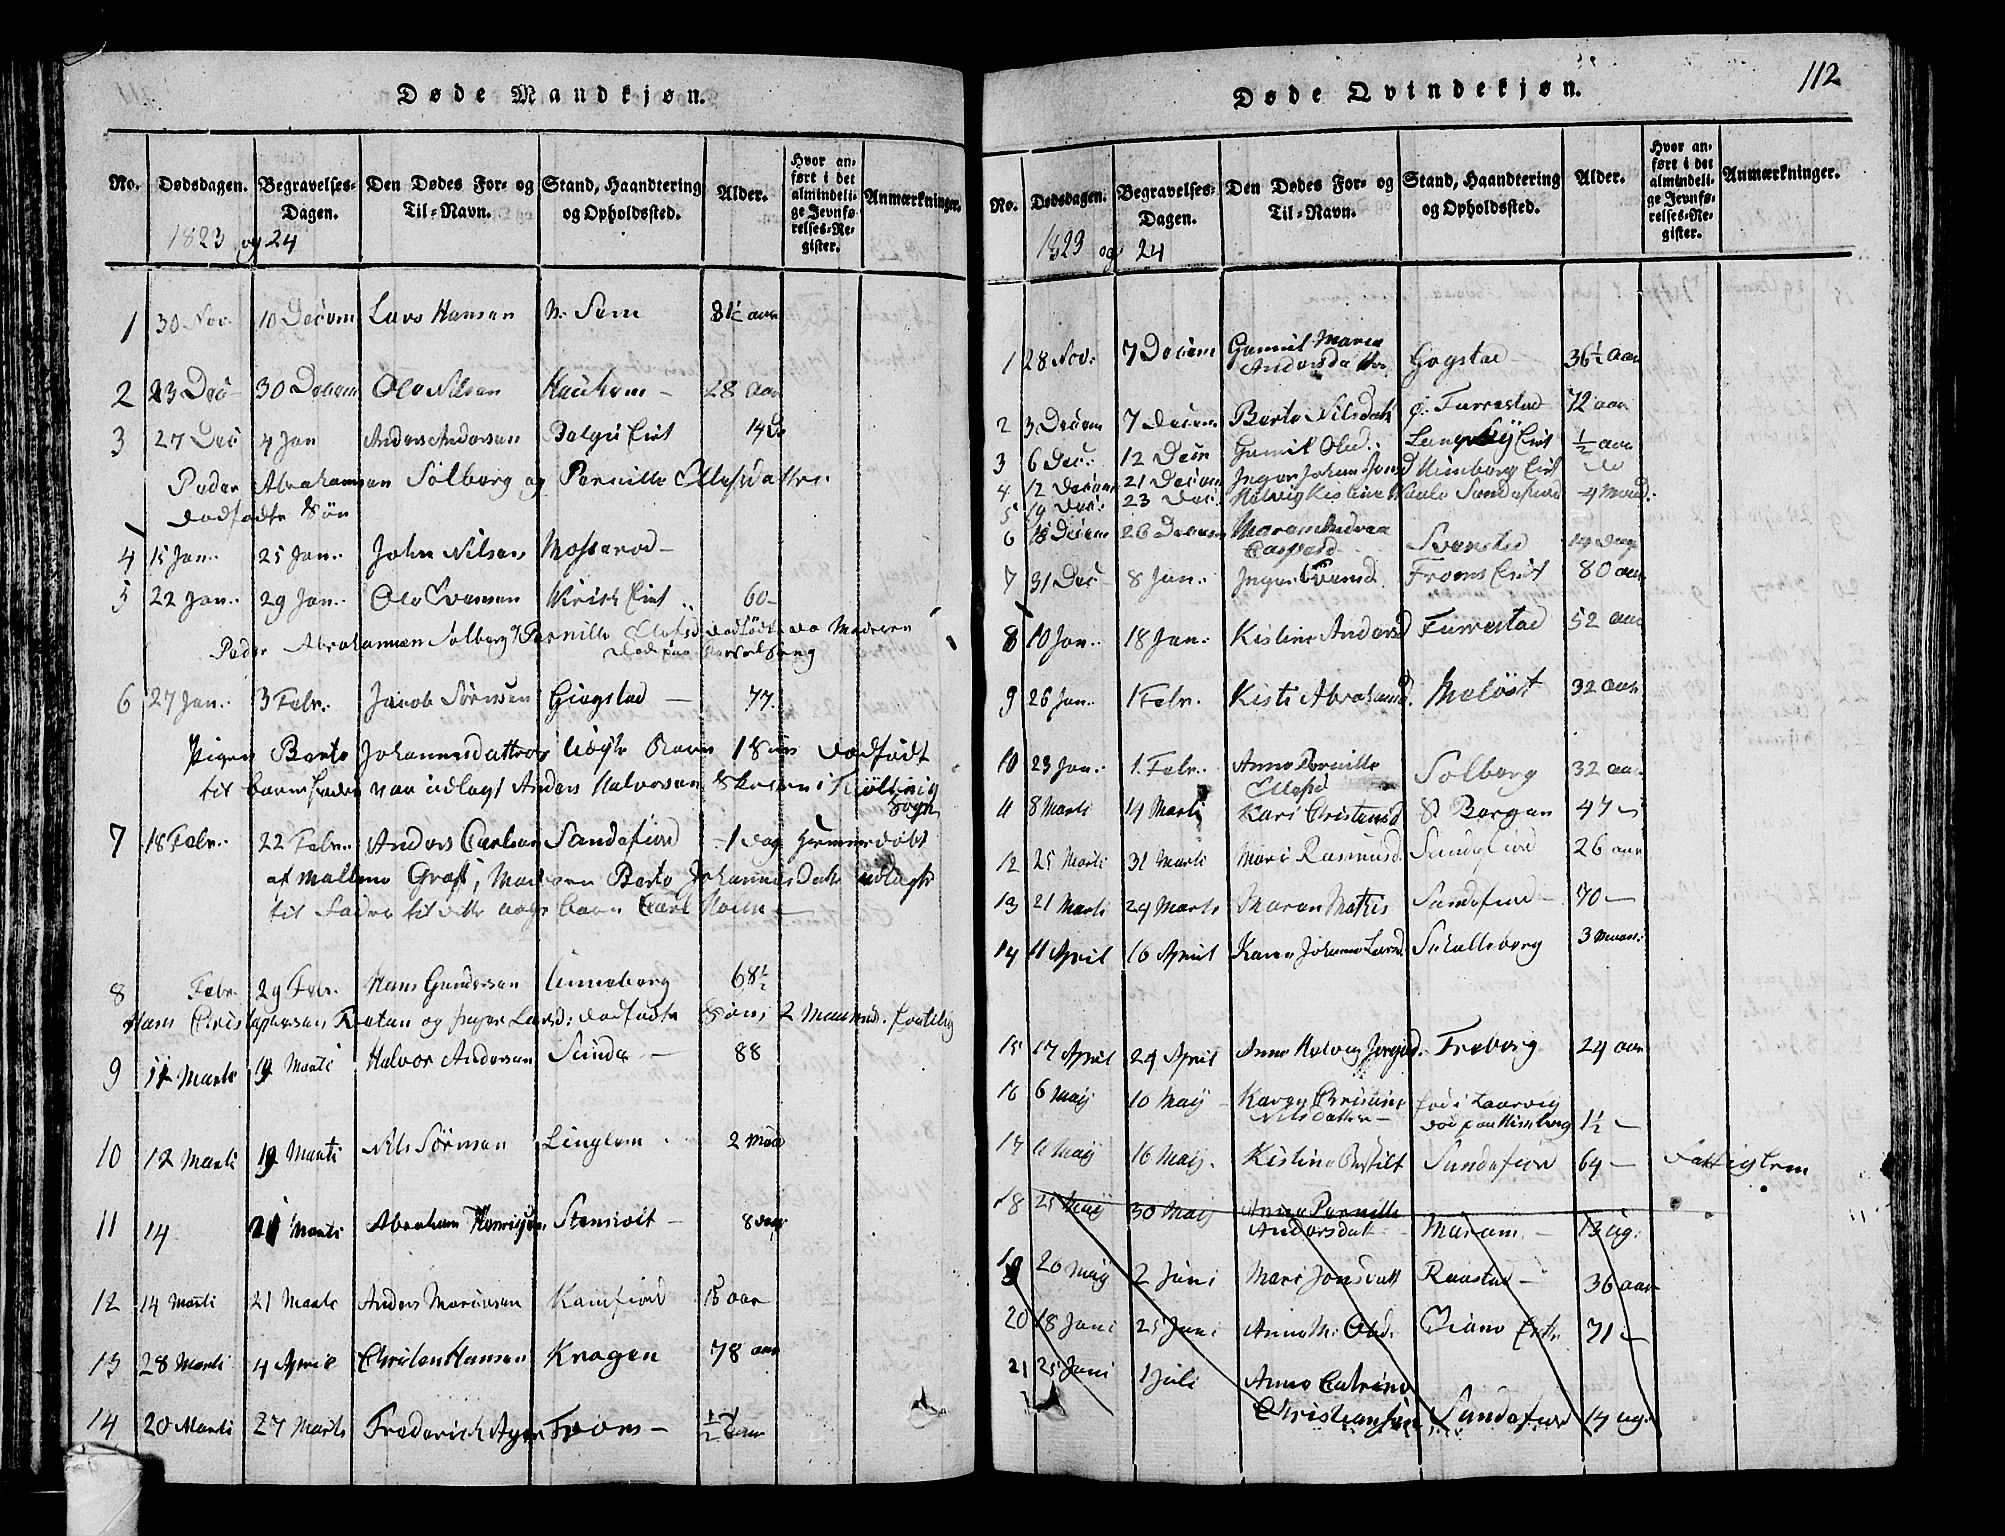 Døde Mandkjøn.
No. Dødsdagen. Begravelses-Dagen. Den Dødes For- og Til-Navn. Stand, Haandtering og Opholdssted. Alder. Hvor anført i det almindelige Jevnførelses-Register. Anmærkninger.
1823 og 24
1 30 Nov. 10 Decem Lars Hansen N. Sem 81½ aar
2 23 Dec 30 Decem Ole Nilsen Haukem 28 aar
3 27 Dec 4 Jan Anders Andersen Eiet 14
Peder Abrahamsen Solberg og Pernille Ellefsdatter
dødfødte Søn
4 15 Jan. 25 Jan. John Nilsen Mosserød
5 22 Jan. 29 Jan. Ole Evensen Eiet 60
Peder Abrahamsen Solberg & Pernille Ellefsd dødfødte Moderen
død paa Barselseng
6 27 Jan. 3 Febr. Jacob Sörensen Giegstad 77.
Pigen Berte Johannesdatters uægte Barn 1 Søn dødfødt
til barnefader var udlagt Anders Halvorsen i
Sogn
7 18 Febr. 22 Febr. Anders Carlsen Sandefiord 1 dag hjemmedøbt
af Mallene Grøft, Moderen Berte Johannesdatter udlagte
til Fader til dette uægte barn Carl
8 Febr. 29 Febr. Hans Gundersen Unneberg 68½
Hans Christophersen og Inger Larsd: dødfødte Søn,
9 11 Marts Marti Halvor Andersen Sunde 88
10 12 Marti 19 Marti Nils Sörensen Linglem 2 Maa
11 14 21 Marti Abraham Henrichsen Stensholt 8 dag
12 14 Marti 21 Marts Anders Mariusen Kamfiord 15 aar
13 28 Marti 4 April Christen Hansen Kragen 78 aar
14 20 Marti 27 Marts Frederich From ½ aar
Døde Qvindekjøn.
112
No. Dødsdagen. Begravelses-Dagen. Den Dødes For- og Til-Navn. Stand, Haandtering og Opholdssted. Alder. Hvor anført i det almindelige Jevnførelses-Register. Anmærkninger.
1823 og 24
1 28 Nov. 7 Decem Gunnil Maria Andersdatter Gogstad 36½ aar
2 3 Decem 7 Decem Berte Nilsdatt Ø. Furrestad 72 aar
3 6 Dec. 12 Decem Gunnil Olsd. Eiet ½ aar
4 12 Decem 21 Decem Inger Himberg Eiet do
5 19 Dec. 23 Dec. Helvig Kistine Sandefiord 4 Maad.
6 18 Decem 26 Decem Maren Andrea Caspersd Svensted 14 dage
7 31 Dec 8 Jan. Inger Evensd Froms Eiet 80 aar
8 10 Jan. 18 Jan. Kistine Andersd Furrestad 52 aar
9 26 Jan. 1 Febr. Kisti Abrahamsd. Meløst 32 aar
10 23 Jan. 1. Febr. Anne Pernille Ellefsd Solberg 32 aar
11 8 Marti 14 Marti Kari Christensd Ø Bergan 47
12 25 Marti 31 Marti Mari Rasmusd Sandefiord 26 aar
13 21 Marti 29 Marts Maren Mathis Sandefiord 70
14 11 April 16 April Karen Johanne Larsd. Skalleberg 3 Maan.
15 17 April 29 April Anne Helvig Jørgensd. Freberg 24 aar
16 6 Maij 10 Maij Karen Christine Nilsdatter fød i Laurvig død paa Himberg 1½
17 11 Maij 16 Maij. Kistine Sandefiord 64 Fattiglem
18 25 Maij 30 Maij Anne Pernille Andersdat Marum 13 ug:
19 20 Maij 2 Juni Mari Jonsdatt Raastad 36 aar
20 18 Juni 25 Juni Anne M. Olsd. Eiet 71
21 25 Juni 1 Juli Anne Catrine Christiansen Sandefiord 14 ug.